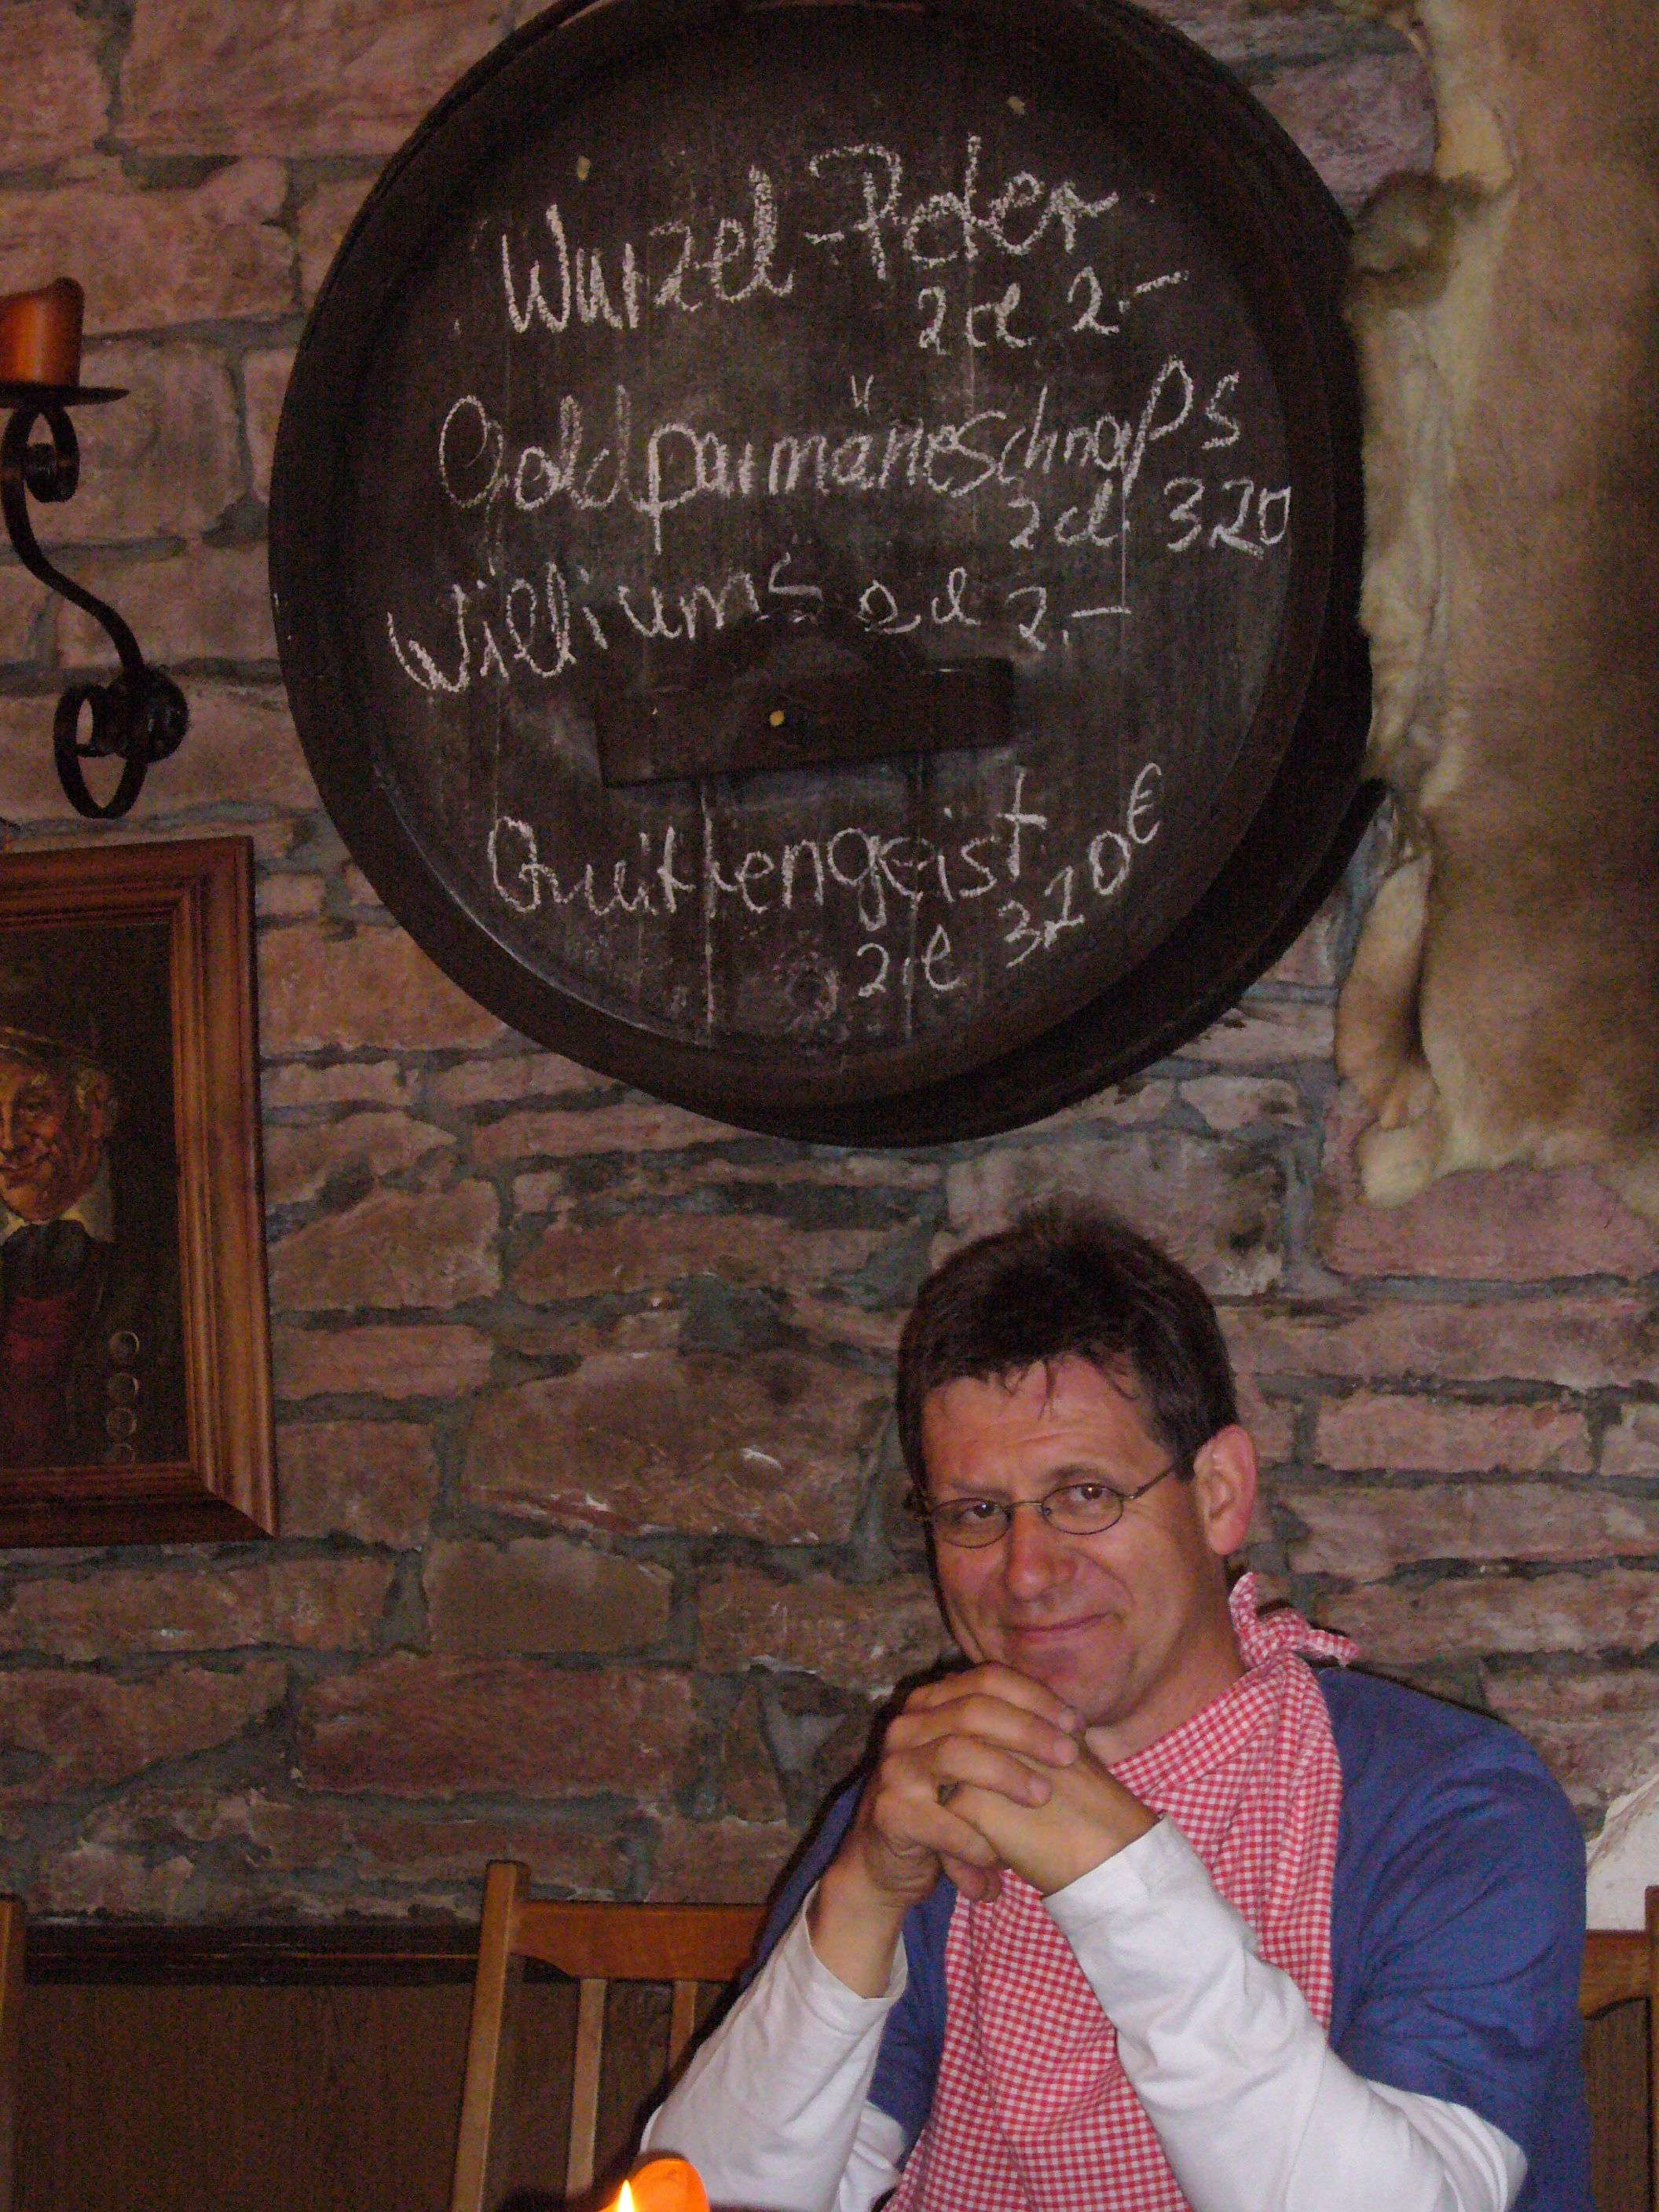 Wurzel-Peter
2cl 2.-
Goldparmäneschnaps
2cl 320
Williums 2cl 2.-
Quittengeist
2cl 320€